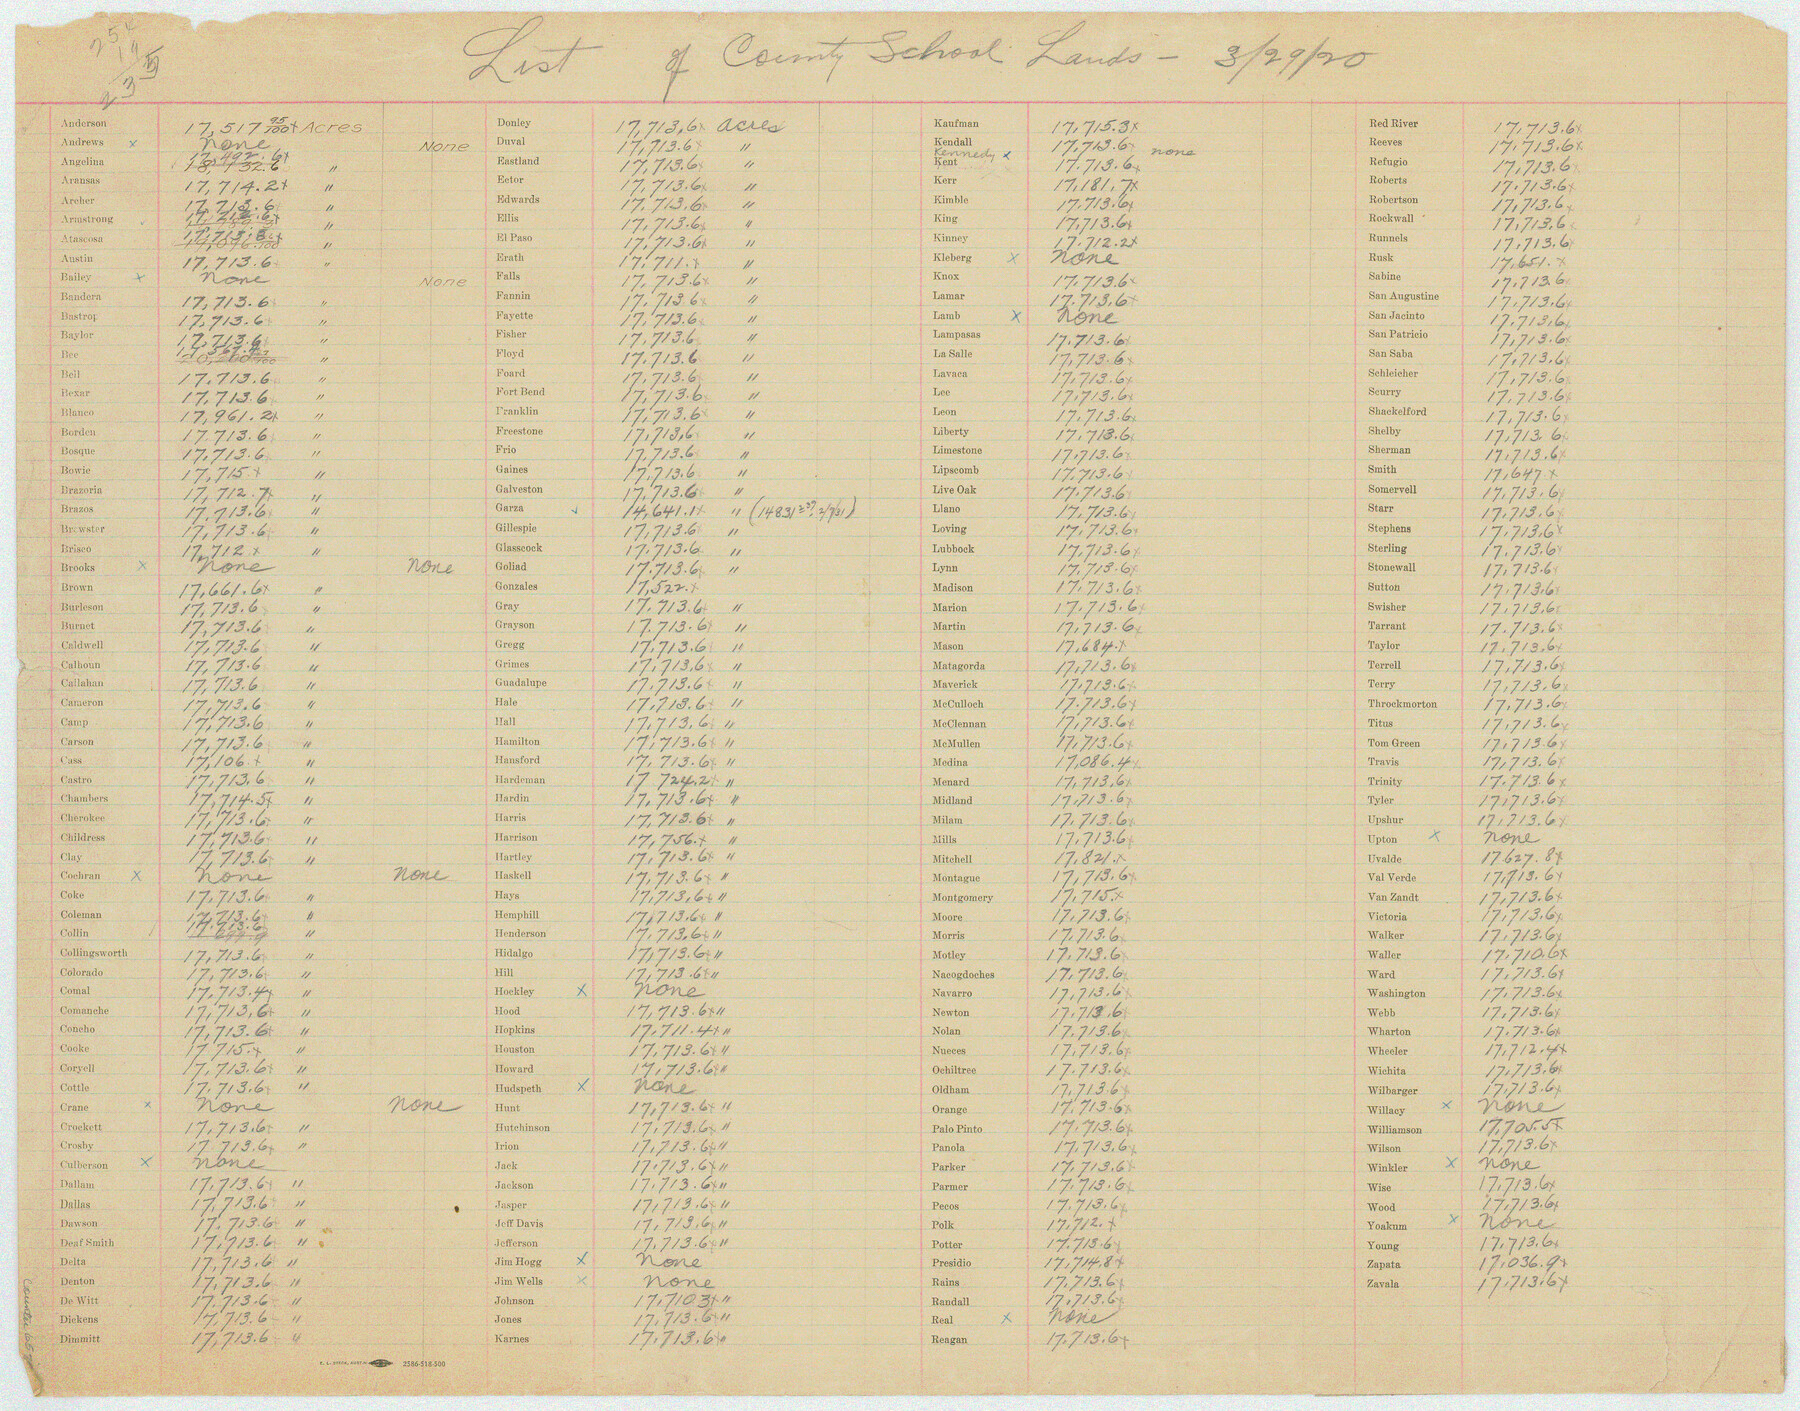 List of County School Lands - 3/29/20
Anderson 17,517 95/100 x Acres
Andrews x None None
Angelina 17,492.6x 18,732.6 "
Aransas 17,714.2x "
Archer 17,713.6 "
Armstrong "
Atascosa 17,713.6x "
Austin 17,713.6 "
Bailey x None None
Bandera 17,713.6 "
Bastrop 17,713.6 "
Baylor 17,713.6 "
Bee "
Bell 17,713.6 "
Bexar 17,713.6 "
Blanco 17,961.2x "
Borden 17,713.6 "
Bosque 17,713.6 "
Bowie 17,715.x "
Brazoria 17,712.7x "
Brazos 17,713.6x "
Brewster 17,713.6x "
Brisco 17,712.x "
Brooks x None None
Brown 17,661.6x "
Burleson 17,713.6 "
Burnet 17,713.6 "
Caldwell 17,713.6 "
Calhoun 17,713.6 "
Callahan 17,713.6 "
Cameron 17,713.6 "
Camp 17,713.6 "
Carson 17,713.6 "
Cass 17,106.x "
Castro 17,713.6 "
Chambers 17,714.5x "
Cherokee 17,713.6 "
Childress 17,713.6 "
Clay 17,713.6 "
Cochran x None None
Coke 17,713.6 "
Coleman 17,713.6 "
Collin 17,713.6 "
Collingsworth 17,713.6 "
Colorado 17,713.6 "
Comal 17,713.4x "
Comanche 17,713.6x "
Concho 17,713.6x "
Cooke 17,715.x "
Coryell 17,713.6x "
Cottle 17,713.6x "
Crane x None None
Crockett 17,713.6x "
Crosby 17,713.6x "
Culberson x None
Dallam 17,713.6x "
Dallas 17,713.6 "
Dawson 17,713.6 "
Deaf Smith 17,713.6 "
Delta 17,713.6 "
Denton 17,713.6 "
De Witt 17,713.6 "
Dickens 17,713.6 "
Dimmitt 17,713.6 "
R. L. STECK, AUSTIN 2386-518-500
Donley 17,713.6x Acres
Duval 17,713.6x "
Eastland 17,713.6x "
Ector 17,713.6x "
Edwards 17,713.6x "
Ellis 17,713.6x "
El Paso 17,713.6x "
Erath 17,711.x "
Falls 17,713.6x "
Fannin 17,713.6 "
Fayette 17,713.6 "
Fisher 17,713.6 "
Floyd 17,713.6 "
Foard 17,713.6 "
Fort Bend 17,713.6 "
Franklin 17,713.6x "
Freestone 17,713.6 "
Frio 17,713.6 "
Gaines 17,713.6 "
Galveston 17,713.6 "
Garza 14,641.1x "
Gillespie 17,713.6 "
Glasscock 17,713.6 "
Goliad 17,713.6 "
Gonzales 17,522.x
Gray 17,713.6 "
Grayson 17,713.6 "
Gregg 17,713.6 "
Grimes 17,713.6x "
Guadalupe 17,713.6 "
Hale 17,713.6x "
Hall 17,713.6 "
Hamilton 17,713.6x "
Hansford 17,713.6x "
Hardeman 17 724.2x "
Hardin 17,713.6x "
Harris 17,713.6x "
Harrison 17,756.x "
Hartley 17,713.6x "
Haskell 17,713.6x "
Hays 17,713.6x "
Hemphill 17,713.6x "
Henderson 17,713.6x "
Hidalgo 17,713.6x "
Hill 17,713.6x "
Hockley x None
Hood 17,713.6x "
Hopkins 17,711.4x "
Houston 17,713.6x "
Howard 17,713.6x "
Hudspeth x None
Hunt 17,713.6x "
Hutchinson 17,713.6x "
Irion 17,713.6x "
Jack 17,713.6x "
Jackson 17,713.6x "
Jasper 17,713.6x "
Jeff Davis 17,713.6x "
Jefferson 17,713.6x "
Jim Hogg x None
Jim Wells x None
Johnson 17,7103x "
Jones 17,713.6x "
Karnes 17,713.6x "
Kaufman 17,715.3x
Kendall 17,713.6x
Kennedy x none
Kent 17,713.6x
Kerr 17,181.7x
Kimble 17,713.6x
King 17,713.6x
Kinney 17,712.2x
Kleberg x None
Knox 17,713.6x
Lamar 17,713.6x
Lamb x None
Lampasas 17,713.6x
La Salle 17,713.6x
Lavaca 17,713.6x
Lee 17,713.6x
Leon 17,713.6x
Liberty 17,713.6x
Limestone 17,713.6x
Lipscomb 17,713.6x
Live Oak 17,713.6x
Llano 17,713.6x
Loving 17,713.6x
Lubbock 17,713.6x
Lynn 17,713.6x
Madison 17,713.6x
Marion 17,713.6x
Martin 17,713.6x
Mason 17,684.x
Matagorda 17,713.6x
Maverick 17,713.6x
McCulloch 17,713.6x
McClennan 17,713.6x
McMullen 17,713.6x
Medina 17,086.4x
Menard 17,713.6x
Midland 17,713.6x
Milam 17,713.6x
Mills 17,713.6x
Mitchell 17,821.x
Montague 17,713.6x
Montgomery 17,715.x
Moore 17,713.6x
Morris 17,713.6x
Motley 17,713.6x
Nacogdoches 17,713.6x
Navarro 17,713.6x
Newton 17,713.6x
Nolan 17,713.6x
Nueces 17,713.6x
Ochiltree 17,713.6x
Oldham 17,713.6x
Orange 17,713.6x
Palo Pinto 17,713.6x
Panola 17,713.6x
Parker 17,713.6x
Parmer 17,713.6x
Pecos 17,713.6x
Polk 17,712.x
Potter 17,713.6x
Presidio 17,714.8x
Rains 17,713.6x
Randall 17,713.6x
Real x None
Reagan 17,713.6x
Red River 17,713.6x
Reeves 17,713.6x
Refugio 17,713.6x
Roberts 17,713.6x
Robertson 17,713.6x
Rockwall 17,713.6x
Runnels 17,713.6x
Rusk 17,651.x
Sabine 17,713.6
San Augustine 17,713.6x
San Jacinto 17,713.6x
San Patricio 17,713.6x
San Saba 17,713.6x
Schleicher 17,713.6x
Scurry 17,713.6x
Shackelford 17,713.6x
Shelby 17,713.6x
Sherman 17,713.6x
Smith 17,647 x
Somervell 17,713.6x
Starr 17,713.6x
Stephens 17,713.6x
Sterling 17,713.6x
Stonewall 17,713.6x
Sutton 17,713.6x
Swisher 17,713.6x
Tarrant 17,713.6x
Taylor 17,713.6x
Terrell 17,713.6x
Terry 17,713.6x
Throckmorton 17,713.6x
Titus 17,713.6x
Tom Green 17,713.6x
Travis 17,713.6x
Trinity 17,713.6x
Tyler 17,713.6x
Upshur 17,713.6x
Upton x None
Uvalde 17627.8x
Val Verde 17,713.6x
Van Zandt 17,713.6x
Victoria 17,713.6x
Walker 17,713.6x
Waller 17,710.6x
Ward 17,713.6x
Washington 17,713.6x
Webb 17,713.6x
Wharton 17,713.6x
Wheeler 17,712.4x
Wichita 17,713.6x
Wilbarger 17,713.6x
Willacy x None
Williamson 17,705.5x
Wilson 17,713.6x
Winkler x None
Wise 17,713.6x
Wood 17,713.6x
Yoakum x None
Young 17,713.6x
Zapata 17,036.9x
Zavala 17,713.6x